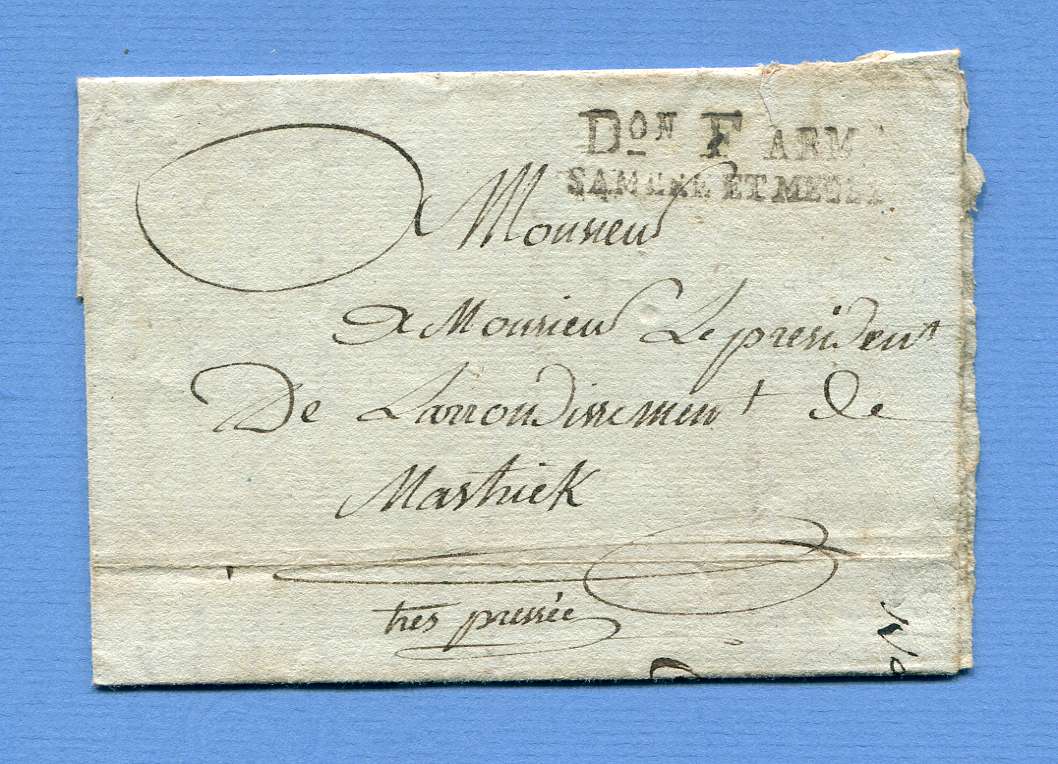 Don F ARM.
SAMBRE ET MEUSE
Monsieur
a Monsieur Le president
De Larrondissement de
Mastriek
très pressée